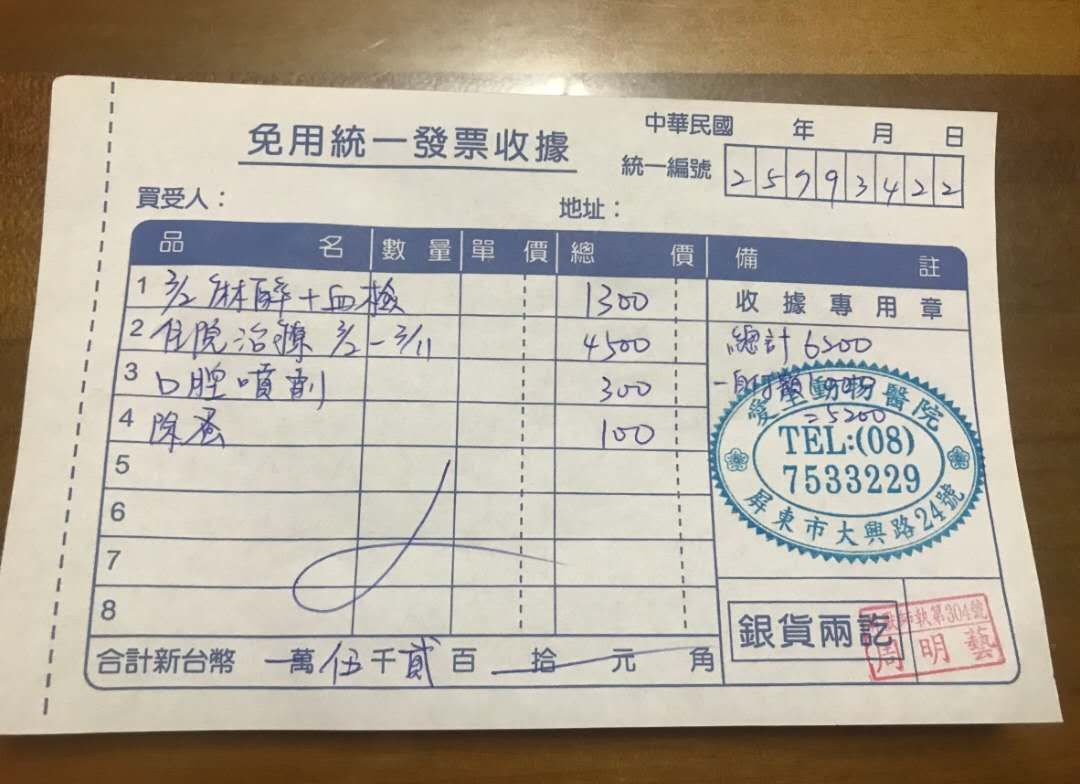 中華民國 年 月 日
免用統一發票收據
統一編號 25793422
買受人：
地址：
品名 數量 單價 總價 備註
1 3/2 麻醉+血檢 1300
收據專用章
2 住院治療 3/2-3/11 4500
總計 6200
3 口腔噴劑 300
4 除蚤 100
=5200
5
6
7
8
動物醫院
TEL:(08)
7533229
屏東市大興路24號
銀貨兩訖
師執第304號
周明藝
合計新台幣 萬伍千貳百 拾 元 角